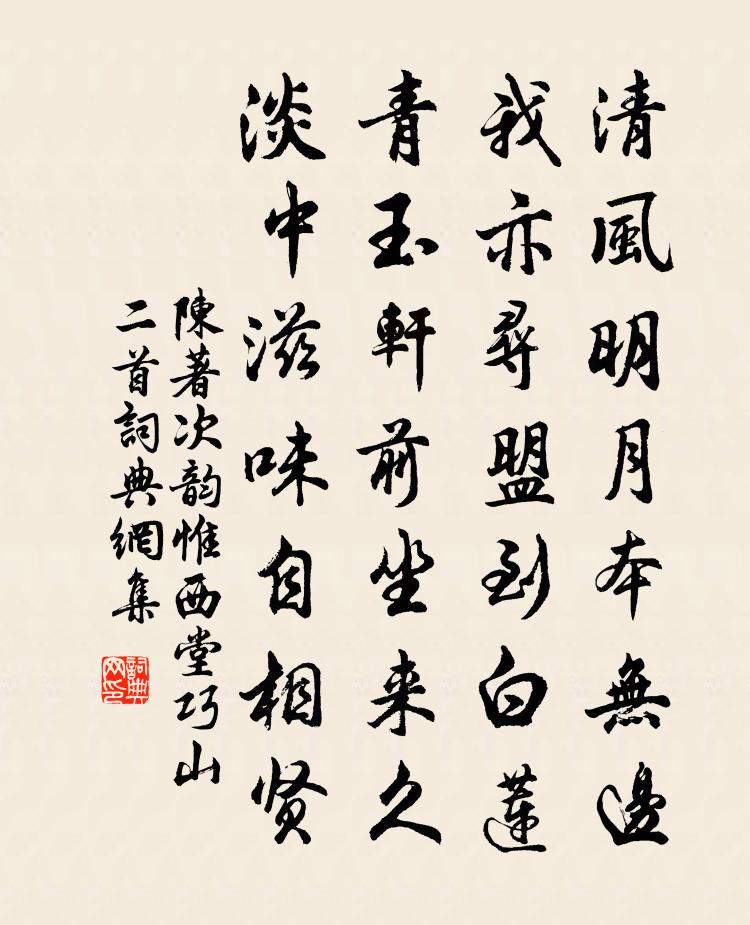 清風明月本無邊
我亦尋盟到白蓮
青玉軒前坐來久
淡中滋味自相贤
陳著次韵惟西堂巧山
二首詞典網集
詞典
网印